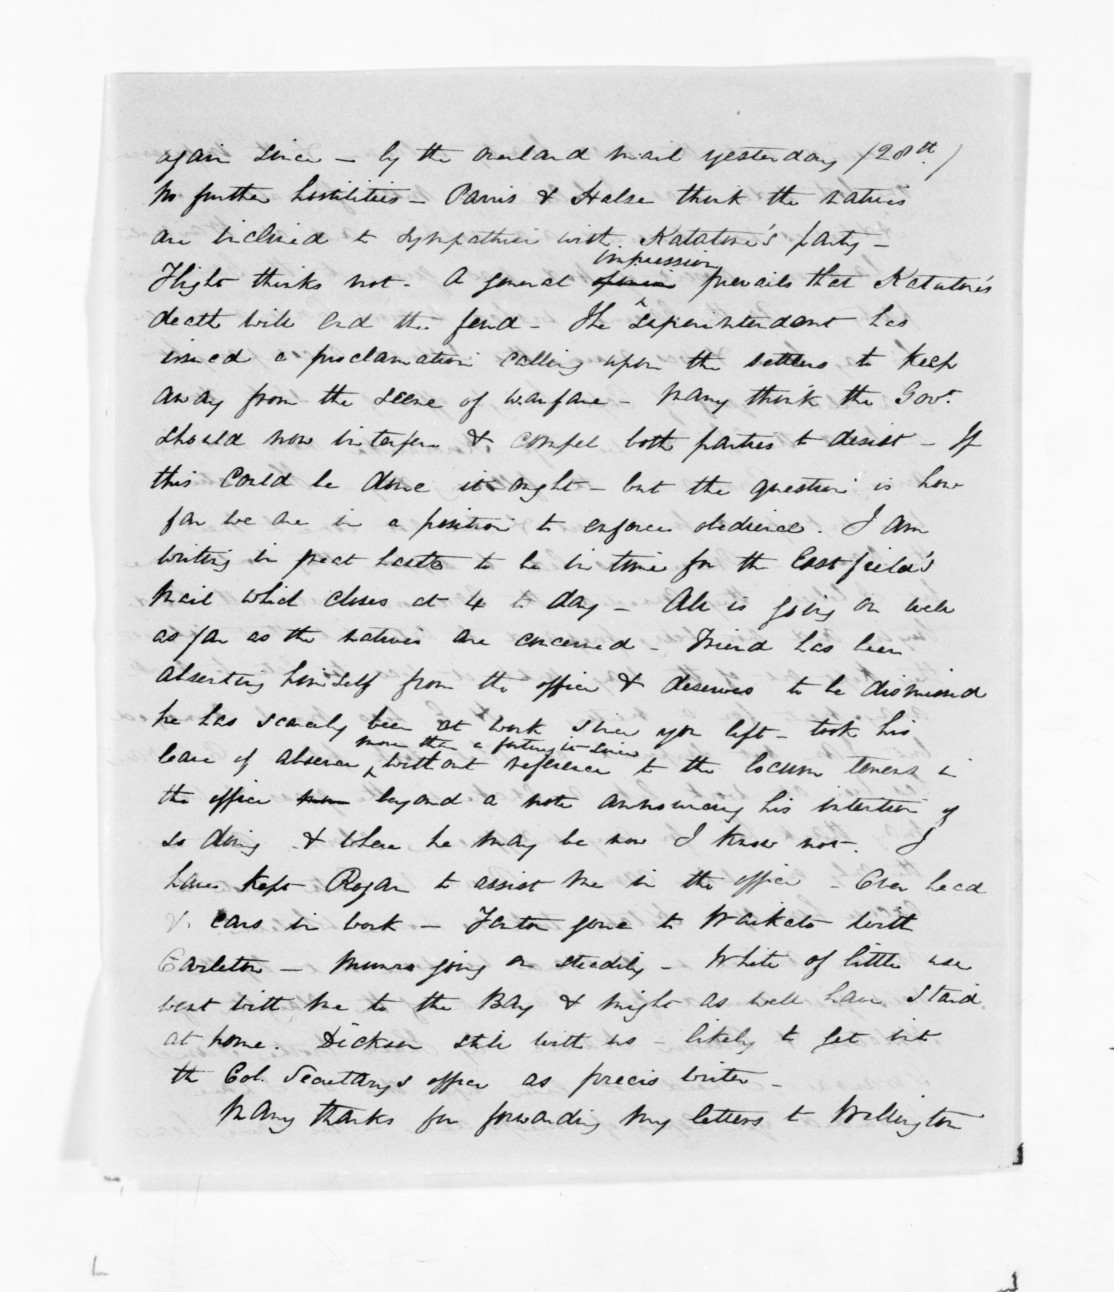 again since - by the overland mail yesterday (28th)
No further hostilities - Parris & Halse think the natives
are inclined to sympathise with Katatore's party -
impression
Flight thinks not. A general opinion prevails that Katatore's
death will end the feud - The Superintendent has
issued a proclamation calling upon the settlers to keep
away from the scene of warfare - Many think the Govt.
should now interfere & compel both parties to desist - If
this could be done it ought - but the question is how
far we are in a position to enforce obedience. I am
writing in great haste to be in time for the Eastfield's
Mail which closes at 4 to day - All is going on well
as far as the natives are concerned - Friend has been
absenting himself from the office & deserves to be dismissed
he has scarcely been at work since you left - took his
more than a fortnight since
leave of absence without reference to the locum tenens in
the office beyond a note announcing his intention of
so doing & where he may be now I know not. I
have kept Rogan to assist me in the office - Over head
& ears in work - Fenton gone to Waikato with
Carleton - Munro going on steadily - White of little use
went with me to the Bay & might as well have staid
at home. Dickson still with us - likely to get into
the Col. Secretary's office as precis writer -
Many thanks for forwarding my letters to Wellington